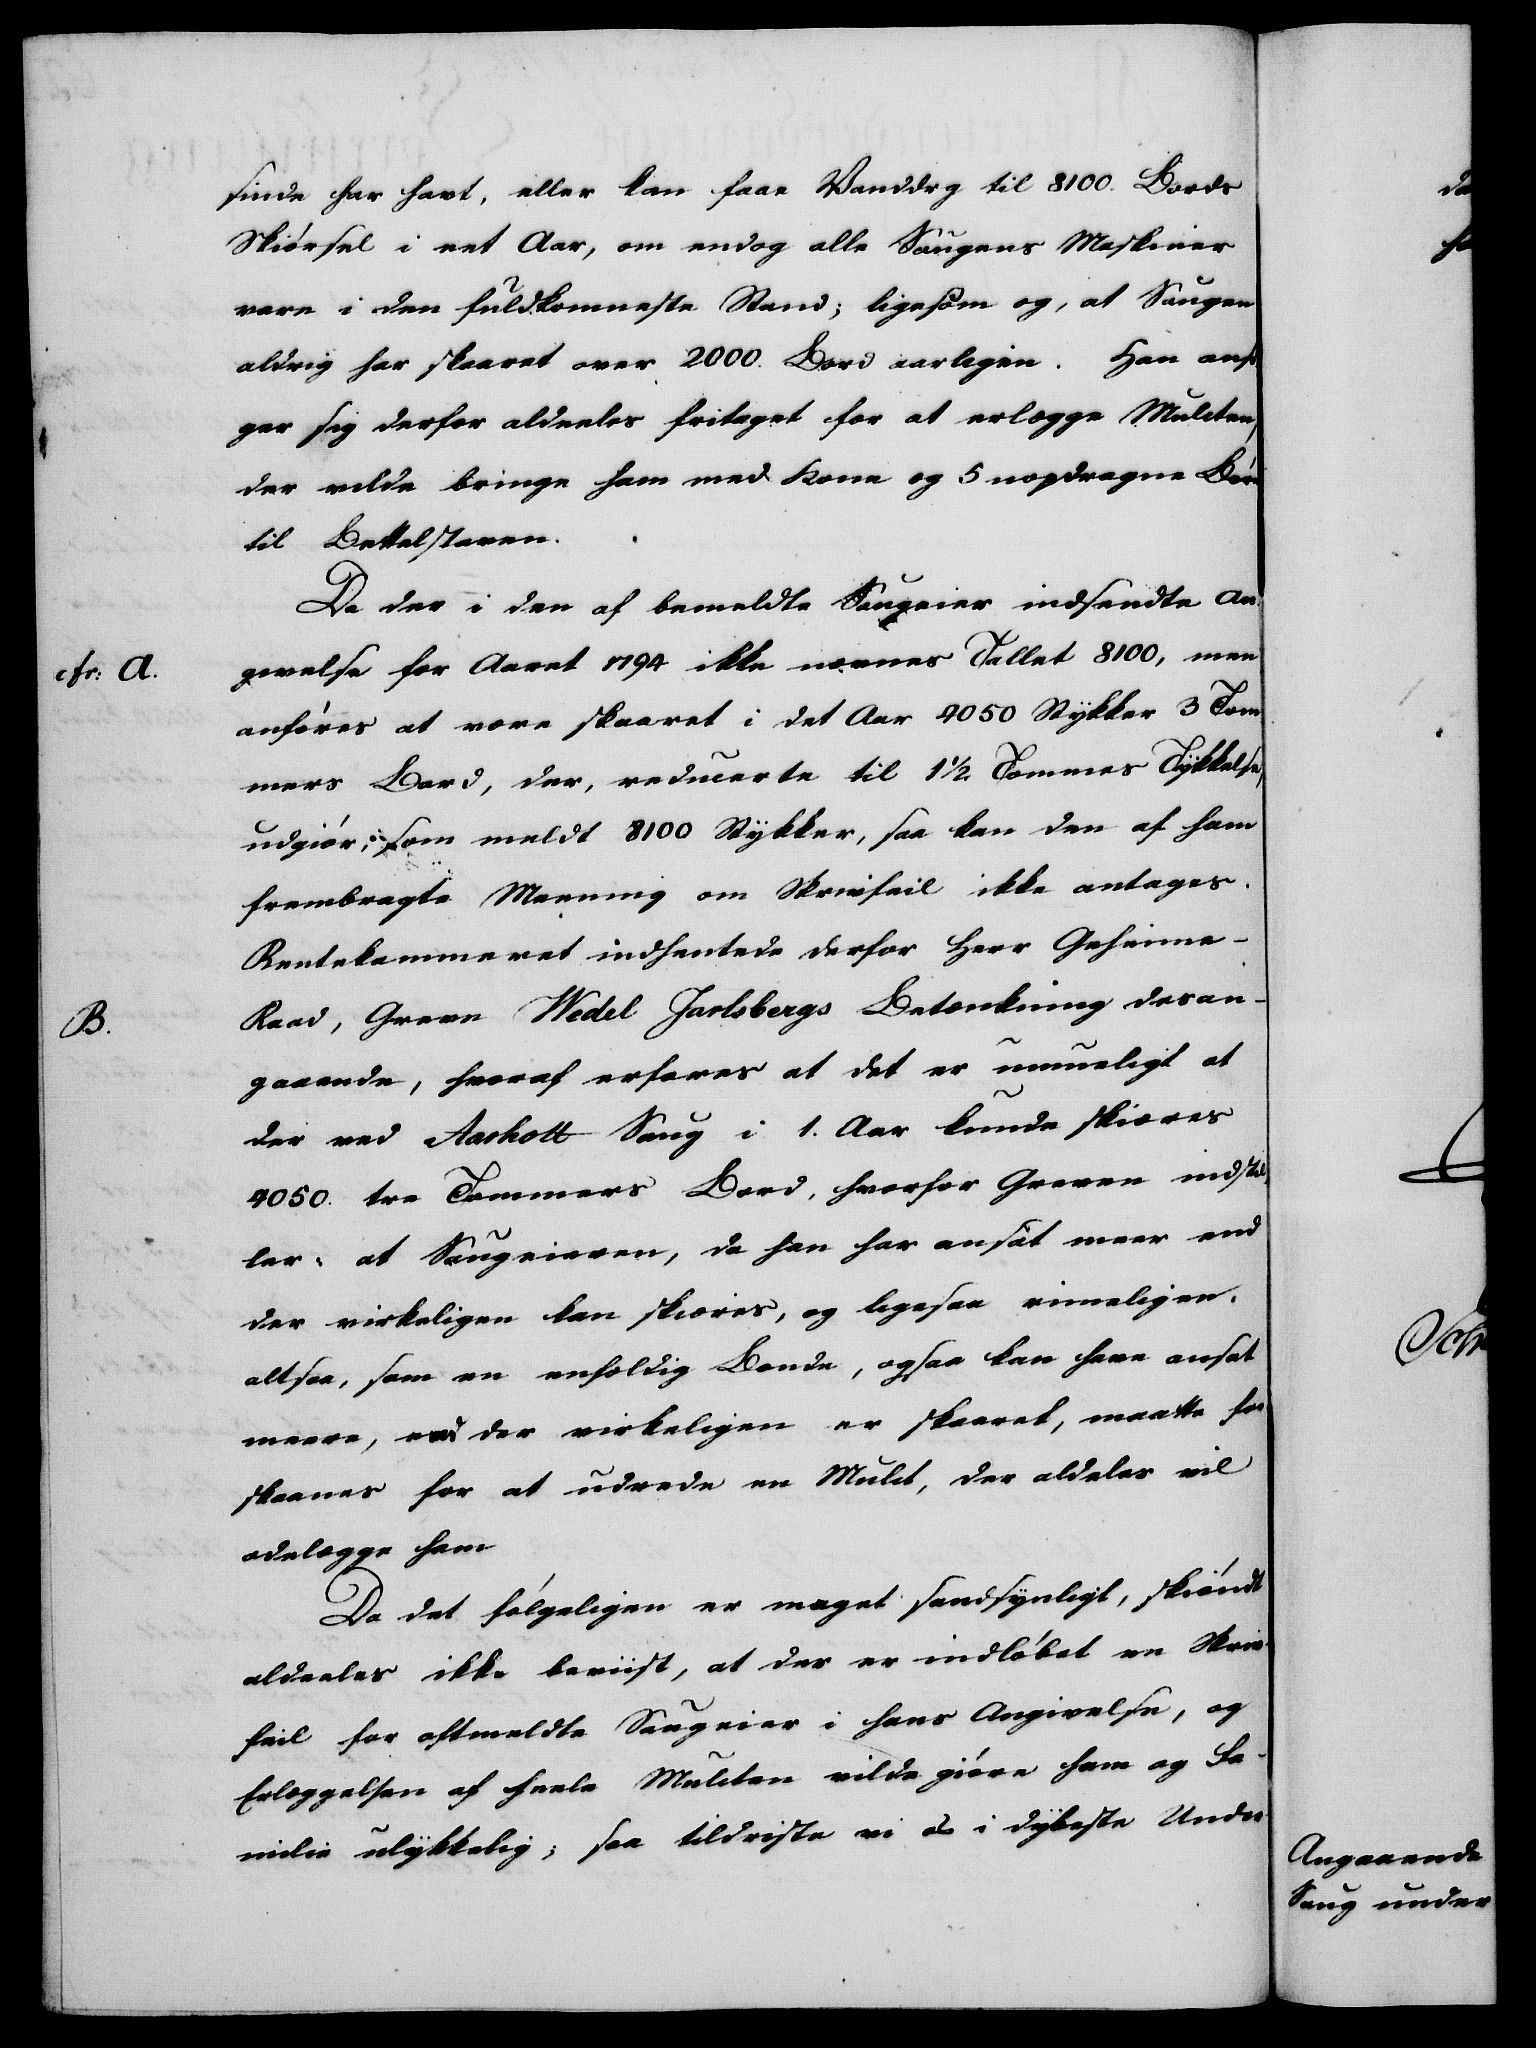 sinde har havt, eller kan faae Vanddrg til 8100. Bords
Skiørsel i eet Aar, om endog alle Saugens Maskiner
vare i den fuldkomneste Stand; ligesom og, at Saugen
aldrig har skaaret over 2000. Bord aarligen. Han ansø
ger sig derfor aldeeles fritaget for at erlægge Mulcten,
der vilde bringe ham med Kone og 5 uopdragne Børn
til Bettelstaven.
Da der i den af bemeldte Saugeier indsendte An
cfr: A. givelse for Aaret 1794 ikke nævnes Tallet 8100, men
anføres at være skaaret i det Aar 4050 Stykker 3 Tom
mers Bord, der, reducerte til 1½ Tommes Tykkelse,
udgiør, som meldt 8100 Stykker, saa kan den af ham
frembragte Meening om Skrivfeil ikke antages.
Rentekammeret indhentede derfor Herr Geheime-
B. Raad, Greve Wedel Jarlsbergs Betænkning desan-
gaaende, hvoraf erfares at det er umueligt at
der ved Aasholt Saug i 1. Aar kunde skiæres
4050. tre Tommers Bord, hvorfor Greven indstil
ler: at Saugeieren, da han har ansat meer end
der virkeligen kan skiæres, og ligesaa rimeligen,
altsaa, som en enfoldig Bonde, ogsaa kan have ansat
meere, end der virkeligen er skaaret, maatte for
skaanes for at udrede en Mulct, der aldeles vil
ødelægge ham
Da det følgeligen er meget sandsynligt, skiøndt
aldeeles ikke beviist, at der er indløbet en Skriv-
feil for oftmeldte Saugeier i hans Angivelse, og
Erlæggelsen af heele Mulcten vilde giøre ham og Fa-
milie ulykkelig; saa tildriste vi os i dybeste Under
Angaaende
Saug under